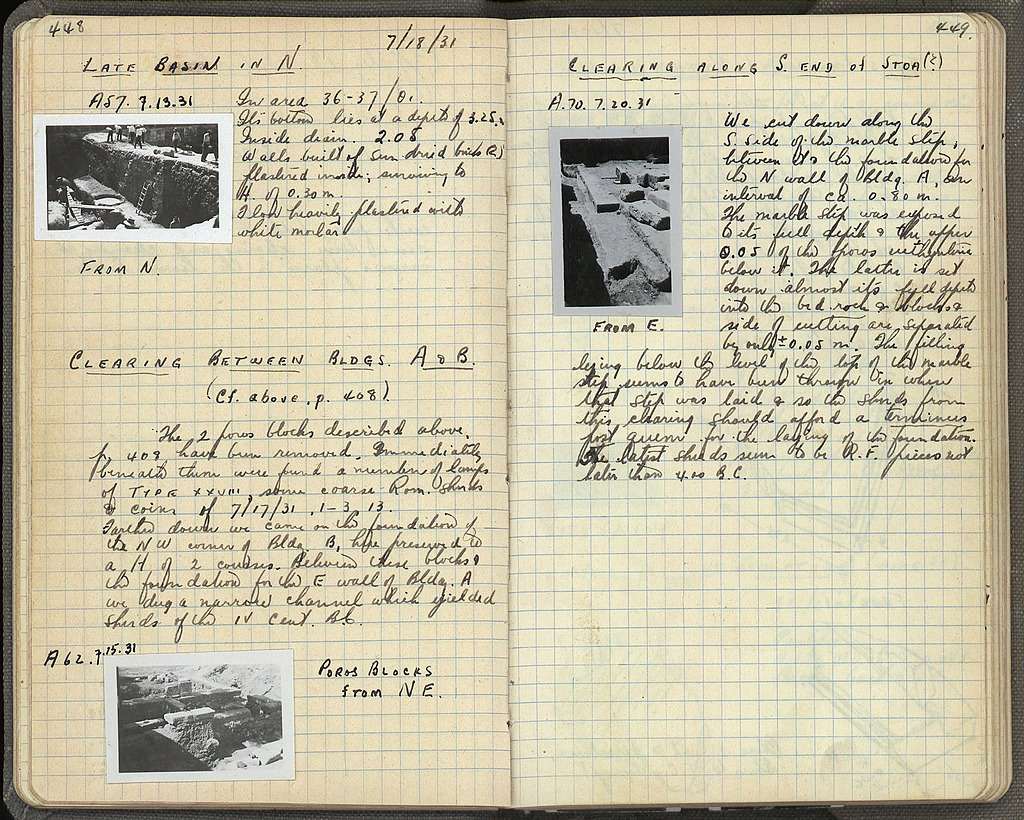 448
7/18/31
LATE BASIN IN N.
A57. 7.13.31
In area 36-37/Θ1.
Its bottom lies at a depth of 3.25.
Inside diam 2.08
Walls built of sun dried brick (?)
plastered inside; surviving to
H. of 0.30 m.
Floor heavily plastered with
white mortar
FROM N.
CLEARING BETWEEN BLDGS. A & B.
(Cf. above, p. 408).
The 2 poros blocks described above,
p. 408 have been removed. Immediately
beneath them were found a number of lamps
of TYPE XXVIII, some coarse Rom. sherds
& coins of 7/17/31, 1-3, 13.
Farther down we came on the foundation of
the NW corner of Bldg. B, here preserved to
a H of 2 courses. Between these blocks &
the foundation for the E wall of Bldg. A
we dug a narrow channel which yielded
sherds of the IV Cent. B.C.
A62. 7.15.31
POROS BLOCKS
from NE.
449.
CLEARING ALONG S. END of STOA(?)
A.70. 7.20.31
We cut down along the
S. side of the marble step,
between it & the foundation for
the N wall of Bldg. A, an
interval of ca. 0.80 m.
The marble step was exposed
to its full depth & the upper
0.05 of the poros
below it. The latter is set
down almost its full depth
into the bed rock & blocks &
side of cutting are separated
by only ± 0.05 m. The filling
lying below the level of the top of the marble
step seems to have been thrown in when
that step was laid & so the sherds from
this clearing should afford a terminus
post quem for the laying of the foundation.
The latest sherds seem to be R.F. pieces not
later than 400 B.C.
FROM E.